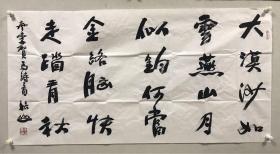 大漠沙如
雪燕山月
似鈎何當
金絡腦快
走踏清秋